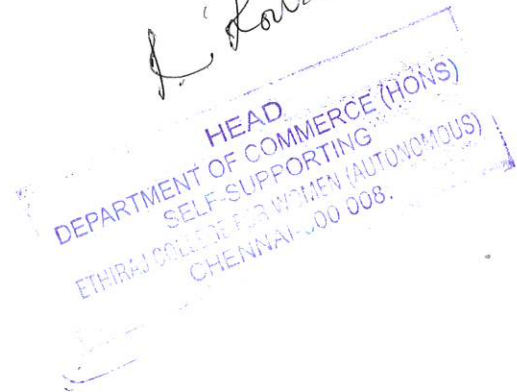 HEAD
DEPARTMENT OF COMMERCE (HONS)
SELF-SUPPORTING
ETHIRAJ COLLEGE FOR WOMEN (AUTONOMOUS)
CHENNAI- 00 008.